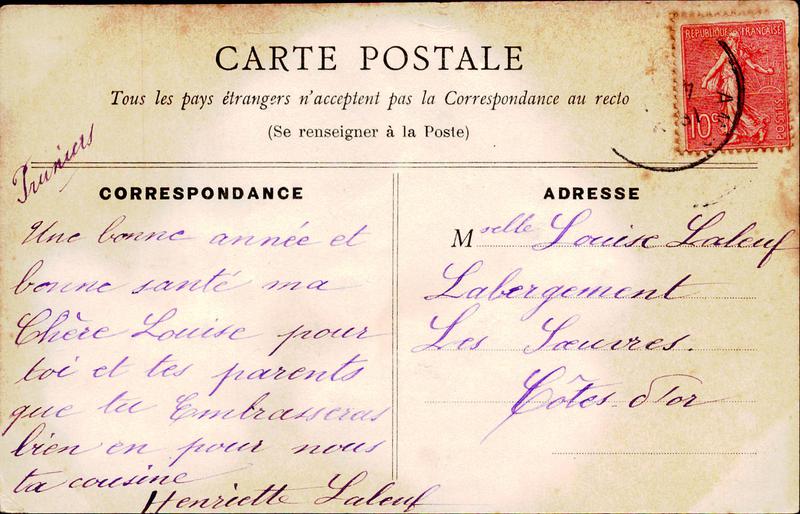 CARTE POSTALE
Tous les pays étrangers n'acceptent pas la Correspondance au recto
(Se renseigner à la Poste)
REPUBLIQUE FRANÇAISE
10c
POSTES
Pruniers
CORRESPONDANCE
Une bonne année et
bonne santé ma
Chère Louise pour
toi et tes parents
que tu Embrasseras
bien en pour nous
ta cousine
Henriette Laleuf
ADRESSE
Mselle Louise Laleuf
Labergement
Les Sœuvres.
Côtes d'or